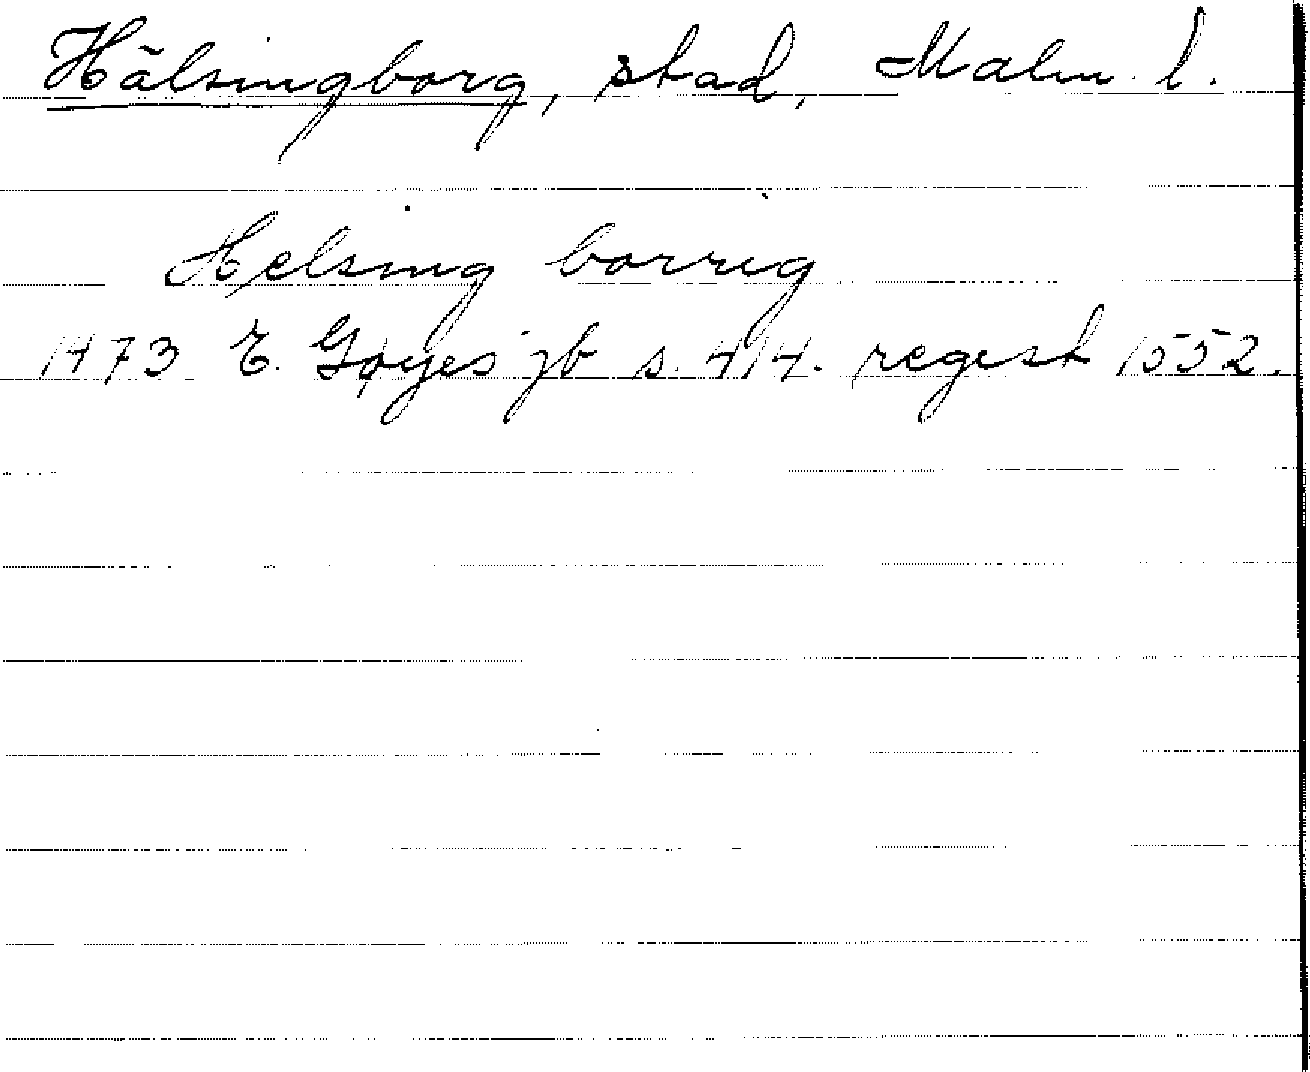 Hälsingborg, stad, Malm. l.
Helsing borrig
1473 E. Gøyes jb s. 414. regest 1552.